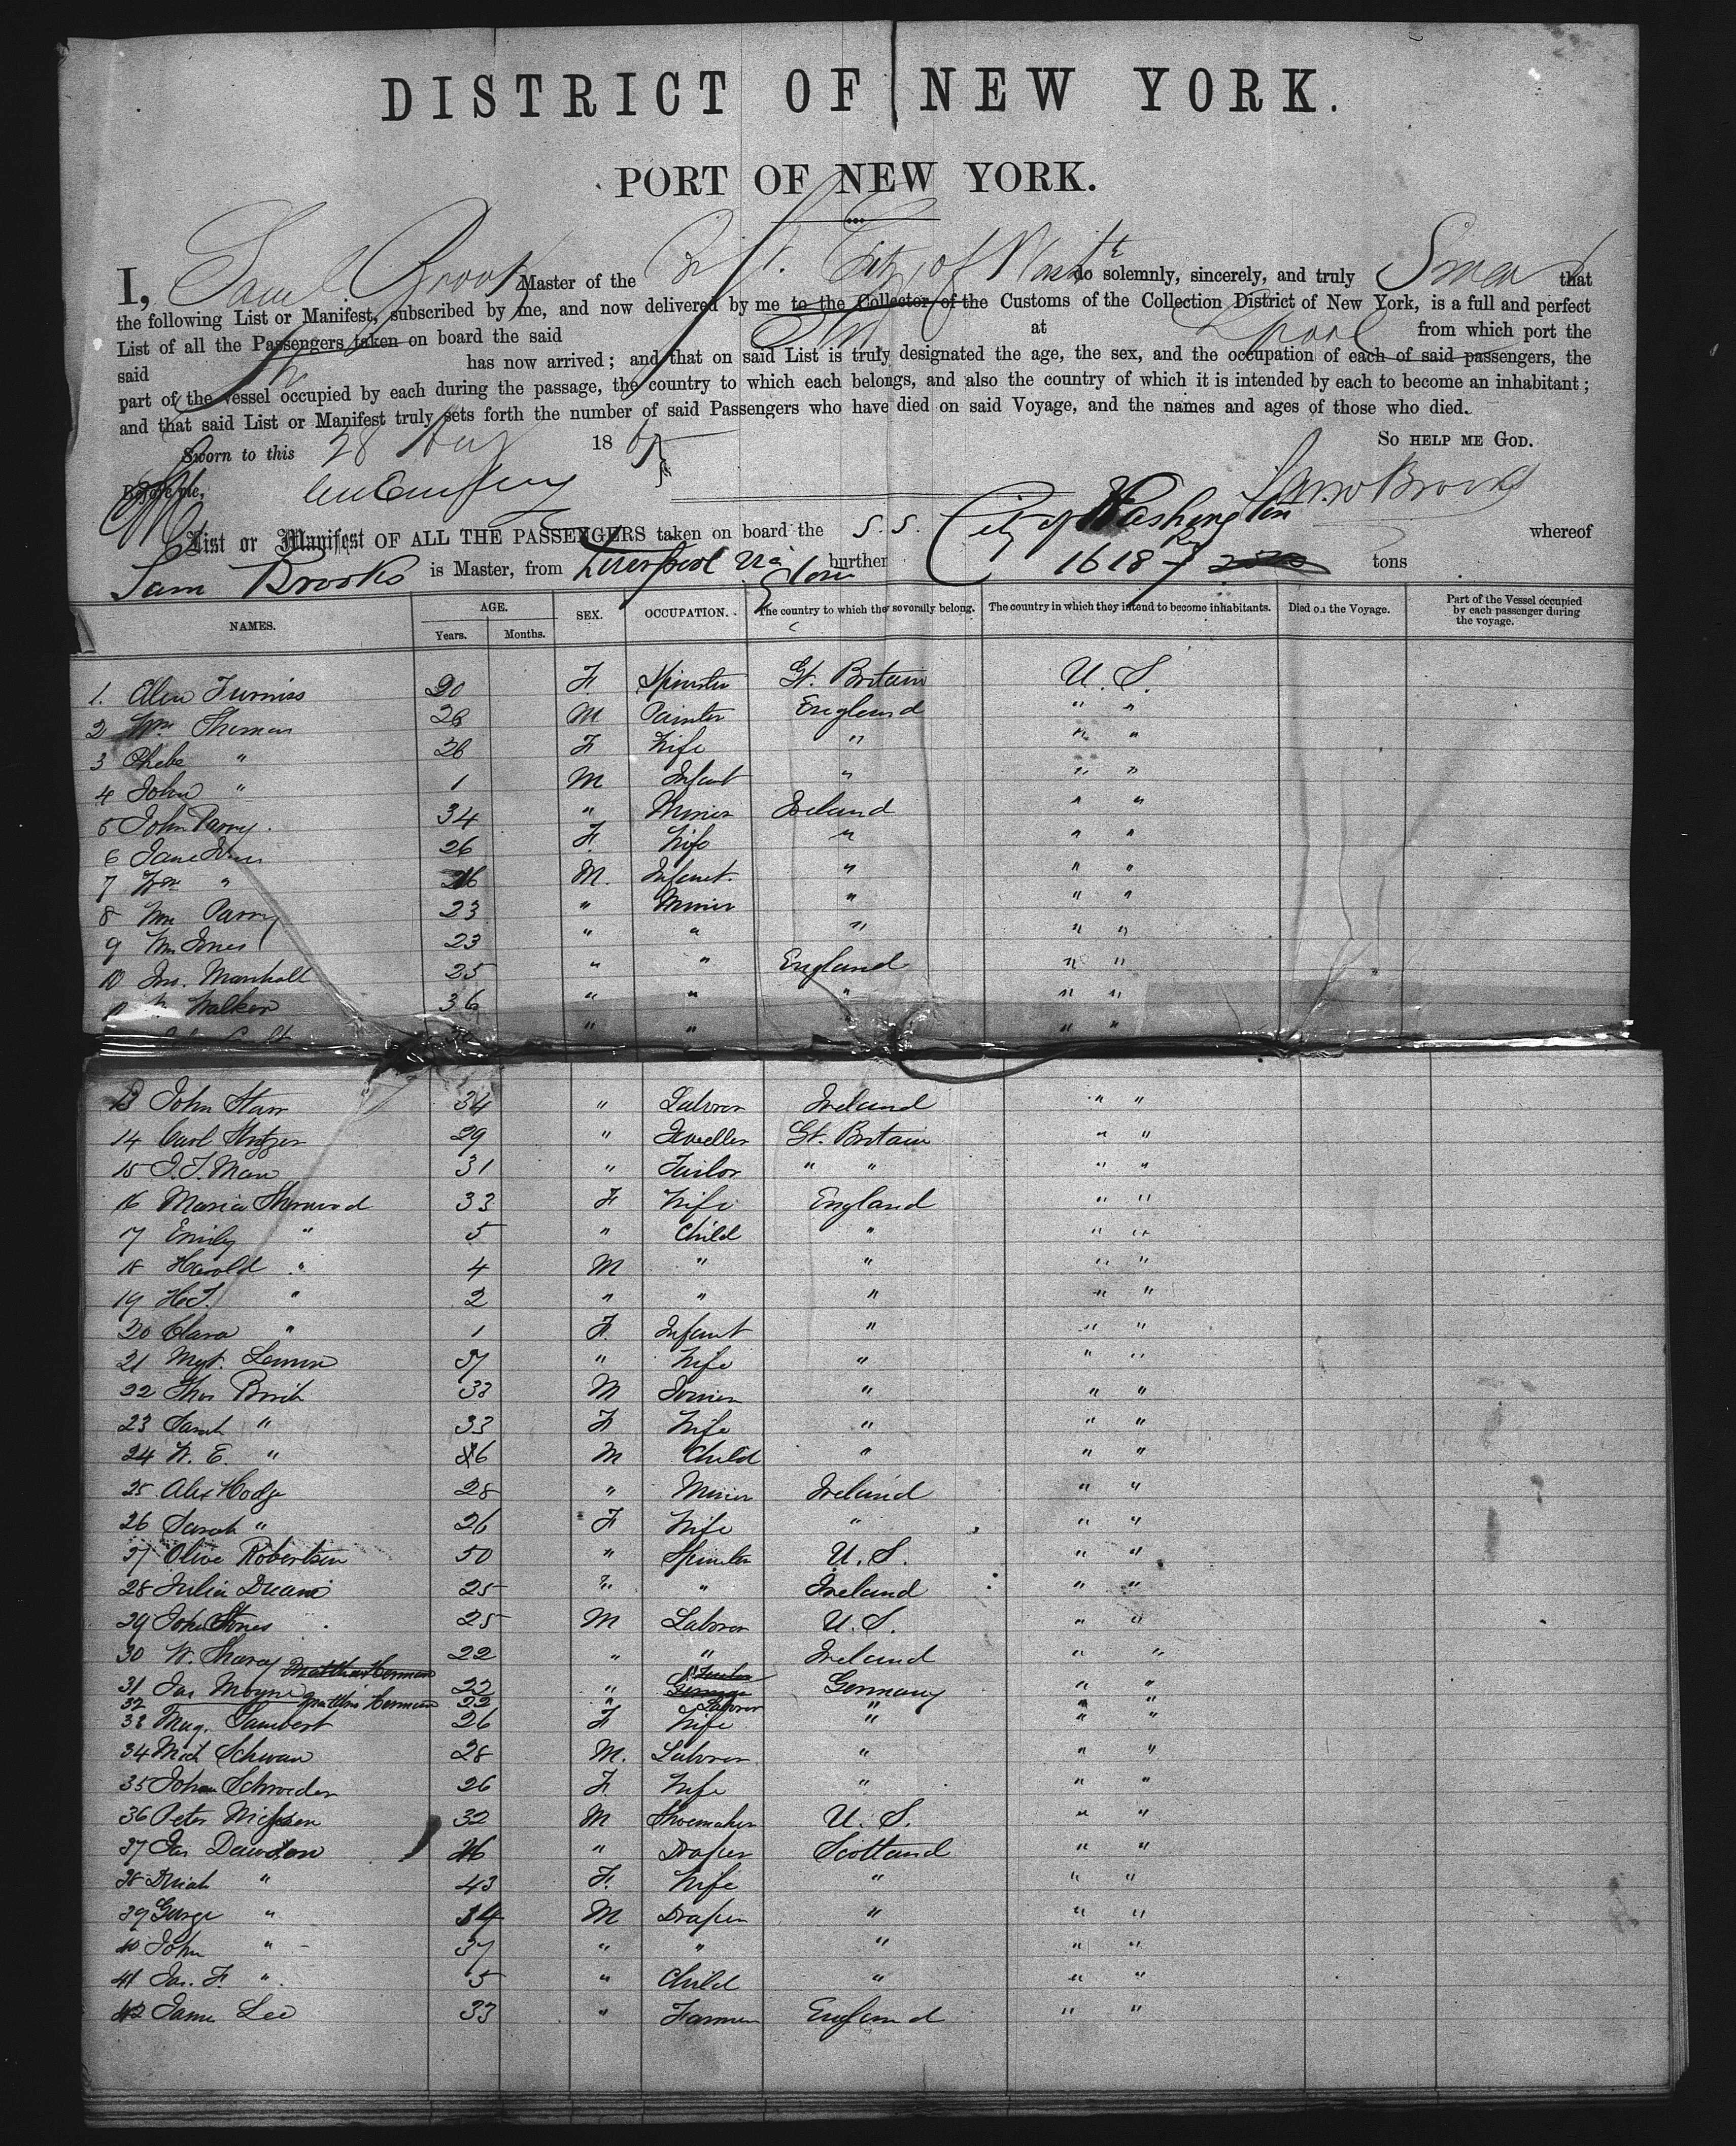 DISTRICT OF NEW YORK.
PORT OF NEW YORK.
I, Saml Brooks Master of the Br. S. City of Washn do solemnly, sincerely, and truly Swear that
the following List or Manifest, subscribed by me, and now delivered by me to the Collector of the Customs of the Collection District of New York, is a full and perfect
List of all the Passengers taken on board the said at Lpool from which port the
said has now arrived; and that on said List is truly designated the age, the sex, and the occupation of each of said passengers, the
part of the vessel occupied by each during the passage, the country to which each belongs, and also the country of which it is intended by each to become an inhabitant;
and that said List or Manifest truly sets forth the number of said Passengers who have died on said Voyage, and the names and ages of those who died.
Sworn to this 28 Aug 18 So HELP ME GOD.
Before me, Saml Brooks
List or Manifest OF ALL THE PASSENGERS taken on board the S.S. City of Washington whereof
Sam Brooks is Master, from Liverpool via burthen 1618 tons
NAMES. AGE. Years. Months. SEX. OCCUPATION. The country to which they severally belong. The country in which they intend to become inhabitants. Died on the Voyage. Part of the Vessel occupied by each passenger during the voyage.
1. Ellen Furniss 20 F. Spinster Gt. Britain U. S.
2 Wm Thomas 28 M Painter England " "
3 Phebe " 26 F. Wife " " "
4 John " 1 M Infant " " "
5 John Parry. 34 " Miner Ireland " "
6 Jane Jones 26 F. Wife " " "
7 Wm " M. Infant. " " "
8 Wm Parry 23 " Miner " " "
9 Wm Jones 23 " " " " "
10 Jno. Marshall 25 " " England " "
11 Walker 36 " " " " "
" " " "
13 John Starr 34 " Laborer Ireland " "
14 Carl 29 " Jweller Gt. Britain " "
15 J. T. Man 31 " Tailor " " " "
16 Maria Sherwood 33 F Wife England " "
17 Emily " 5 " Child " " "
18 Harold " 4 M " " " "
19 H.T. " 2 " " " " "
20 Clara " 1 F. Infant " " "
21 Mgt. Lemon 37 " Wife " " "
22 Thos Birch 33 M Joiner " " "
23 Sarah " 33 F Wife " " "
24 W. E. " 6 M Child " " "
25 Alex Hodge 28 " Miner Ireland " "
26 Sarah " 26 F Wife " " "
27 Olive Robertson 50 " Spinster U. S. " "
28 Julia Duane 25 " " Ireland " "
29 John Stones 25 M Laborer U. S. " "
30 W. 22 " " Ireland " "
31 Jas Moyne Matthias Herman 22 " Germany " "
32 Matthias Herman 22 " Laborer " " "
33 Mag. Lambert 26 F Wife " " "
34 Mich Schwan 28 M. Laborer " " "
35 Johan Schroeder 26 F. Wife " " "
36 Peter 32 M Shoemaker U. S. " "
37 Jas Dawson 46 " Draper Scotland " "
38 " 43 F. Wife " " "
39 George " 14 M Draper " " "
40 John " 37 " " " " "
41 Jas. F. " 5 " Child " " "
42 James Lee 33 " Farmer England " "